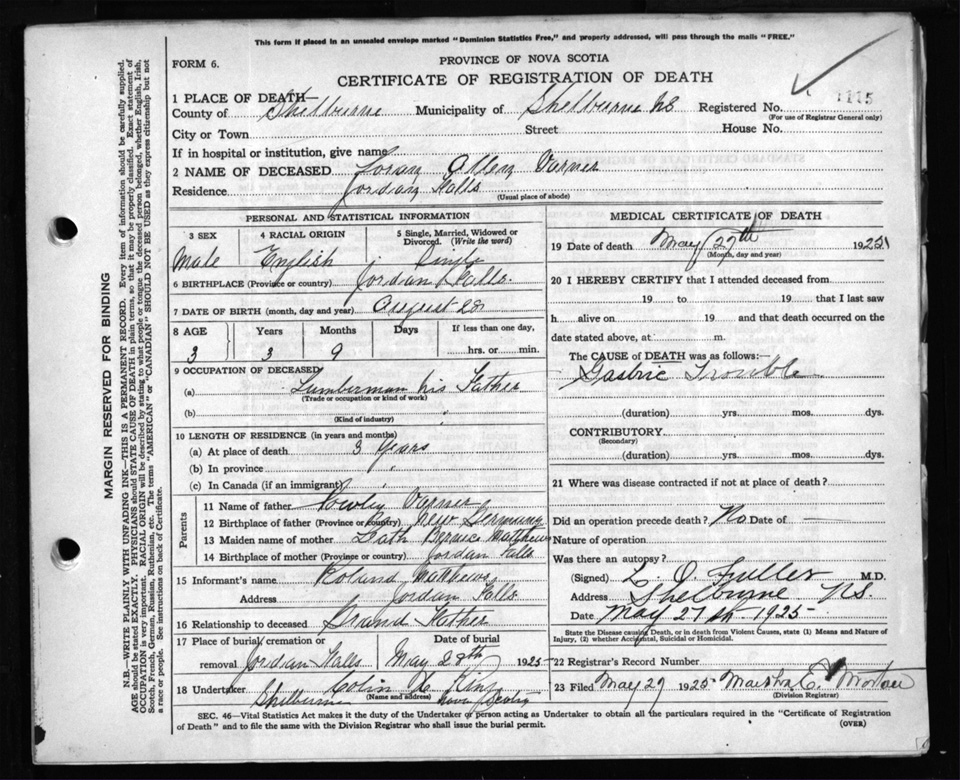 This form if placed in an unsealed envelope marked "Dominion Statistics Free," and properly addressed, will pass through the mails "FREE."
FORM 6.
PROVINCE OF NOVA SCOTIA
CERTIFICATE OF REGISTRATION OF DEATH
1 PLACE OF DEATH
County of Shelburne Municipality of Shelburne NS Registered No. 1115
(For use of Registrar General only)
City or Town Street House No.
If in hospital or institution, give name
2 NAME OF DECEASED Loran Allen Varner
Residence Jordan Falls
(Usual place of abode)
PERSONAL AND STATISTICAL INFORMATION
3 SEX 4 RACIAL ORIGIN 5 Single, Married, Widowed or Divorced. (Write the word)
Male English Single
6 BIRTHPLACE (Province or country) Jordan Falls.
7 DATE OF BIRTH (month, day and year) August 28
8 AGE Years Months Days If less than one day,
3 3 9 hrs. or min.
9 OCCUPATION OF DECEASED
(a) Lumberman his Father
(Trade or occupation or kind of work)
(b)
(Kind of industry)
10 LENGTH OF RESIDENCE (in years and months)
(a) At place of death 3 Years
(b) In province
(c) In Canada (if an immigrant)
Parents
11 Name of father Varner
12 Birthplace of father (Province or country) New Germany
13 Maiden name of mother Bernice Matthews
14 Birthplace of mother (Province or country) Jordan Falls
15 Informant's name Roland Matthews
Address Jordan Falls
16 Relationship to deceased Grand Father
17 Place of burial, cremation or Date of burial
removal Jordan Falls May 28th 1925
18 Undertaker Colin King
(Name and address)
Shelburne Nova Scotia
MEDICAL CERTIFICATE OF DEATH
19 Date of death May 27th 1925
(Month, day and year)
20 I HEREBY CERTIFY that I attended deceased from
19 to 19 that I last saw
h alive on 19 and that death occurred on the
date stated above, at m.
The CAUSE of DEATH was as follows:—
Gastric Trouble
(duration) yrs. mos. dys.
CONTRIBUTORY
(Secondary)
(duration) yrs. mos. dys.
21 Where was disease contracted if not at place of death?
Did an operation precede death? No Date of —
Nature of operation
Was there an autopsy?
(Signed) L. O. Fuller M.D.
Address Shelburne N.S.
Date May 27th 1925
State the Disease causing Death, or in death from Violent Causes, state (1) Means and Nature of Injury, (2) whether Accidental, Suicidal or Homicidal.
22 Registrar's Record Number
23 Filed May 27 1925 Martha E.
(Division Registrar)
SEC. 46—Vital Statistics Act makes it the duty of the Undertaker or person acting as Undertaker to obtain all the particulars required in the "Certificate of Registration
of Death" and to file the same with the Division Registrar who shall issue the burial permit.
(OVER)
MARGIN RESERVED FOR BINDING
N.B.—WRITE PLAINLY WITH UNFADING INK—THIS IS A PERMANENT RECORD. Every item of information should be carefully supplied.
AGE should be stated EXACTLY. PHYSICIANS should STATE CAUSE OF DEATH in plain terms, so that it may be properly classified. Exact statement of
OCCUPATION is very important. RACIAL ORIGIN will be described by stating to what people or tongue the deceased person belonged, whether English, Irish,
Scotch, French, German, Russian, Ruthenian, etc. The terms "AMERICAN" or "CANADIAN" SHOULD NOT BE USED as they express citizenship but not
a race or people. See instructions on back of Certificate.